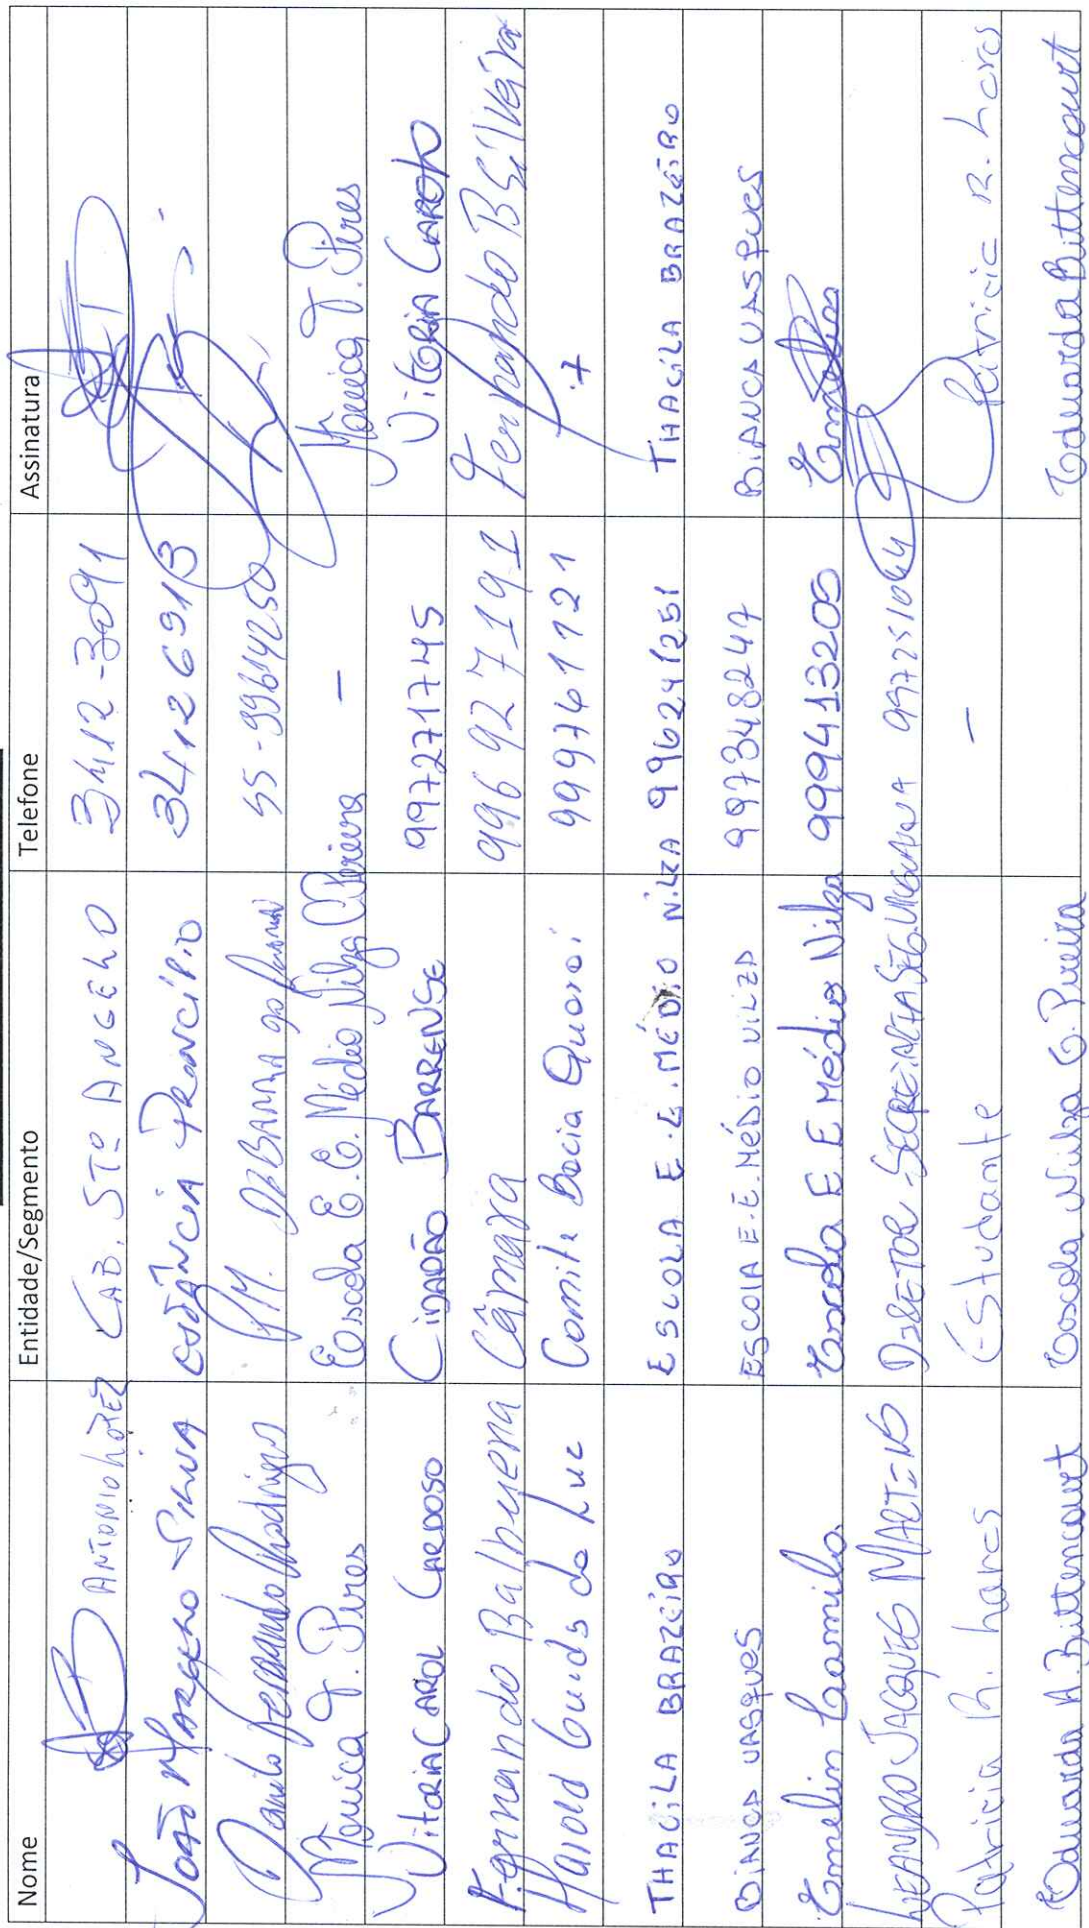 Nome Entidade/Segmento Telefone Assinatura
ANTONIO LOPEZ CAB. STº ANGELO 3412-3091
JOÃO SILVA ESTÂNCIA PRINCÍPIO 34126913
Danilo Fernando Rodrigues P.M. DE BARRA DO 55-99614250
Mônica T. Pires Escola E. E. Médio Nilza C. Pereira – Mônica T. Pires
VITORIA CAROL CARDOSO CIDADÃO BARRENSE 997271745 VITORIA CARDO
Fernando Balhuena Câmara 996927191 Fernando B Silveira
Harold da Luz Comite Bacia Quaraí 999761121
THACILA BRAZEIRO ESCOLA E.E. MÉDIO NILZA 996241251 THACILA BRAZEIRO
BIANCA VASQUES ESCOLA E.E. MÉDIO NILZA 997348247 BIANCA VASQUES
Emelin Camila Escola E.E. Médio Nilza 999413205 Emelin
LEANDRO JACQUES MARTINS DIRETOR SECRETARIA SEGURANÇA 997251044
Patricia R. Lares Estudante – Patricia R. Lares
Eduarda A. Bittencourt Escola Nilza G. Pereira Eduarda Bittencourt